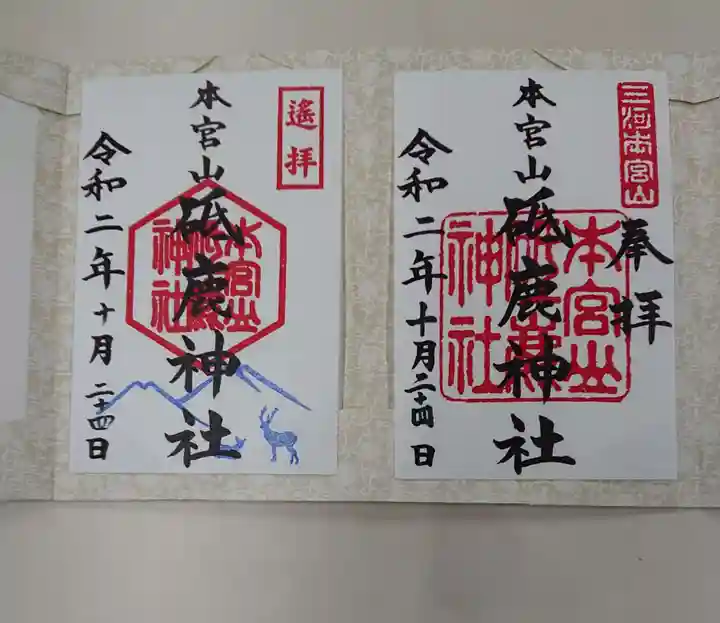 三河本宮山
奉拝
本宮山
砥鹿神社
本宮山
神社
令和二年十月二十四日
遙拝
本宮山
砥鹿神社
本宮山
神社
令和二年十月二十四日